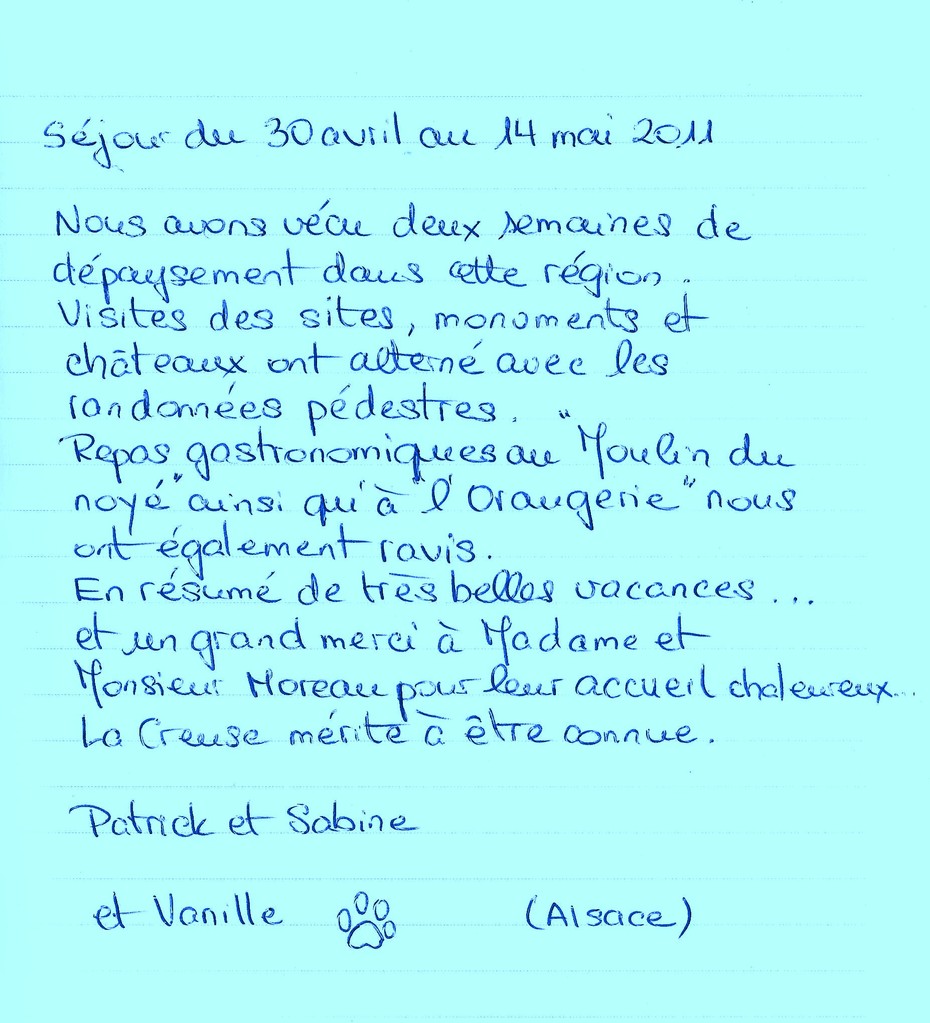 Séjour du 30 avril au 14 mai 2011
Nous avons vécu deux semaines de
dépaysement dans cette région.
Visites des sites, monuments et
châteaux ont alterné avec les
randonnées pédestres.
Repas gastronomiques au "Moulin du
noyé" ainsi qu'à "l'Orangerie" nous
ont également ravis.
En résumé de très belles vacances...
et un grand merci à Madame et
Monsieur Moreau pour leur accueil chaleureux...
La Creuse mérite à être connue.
Patrick et Sabine
et Vanille (Alsace)